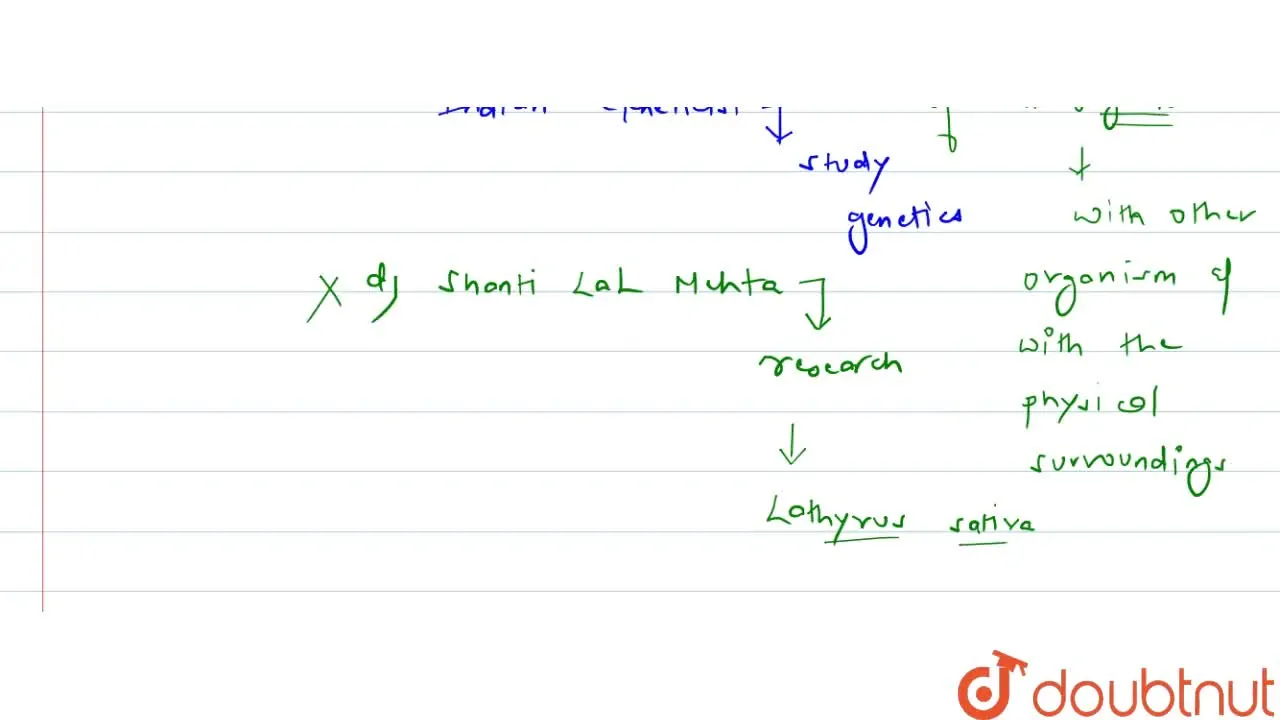 Indian Geneticist
study
genetics
X d) Shanti LaL Mehta
research
Lathyrus sativa
with other
organism of
with the
physical
surroundings
doubtnut